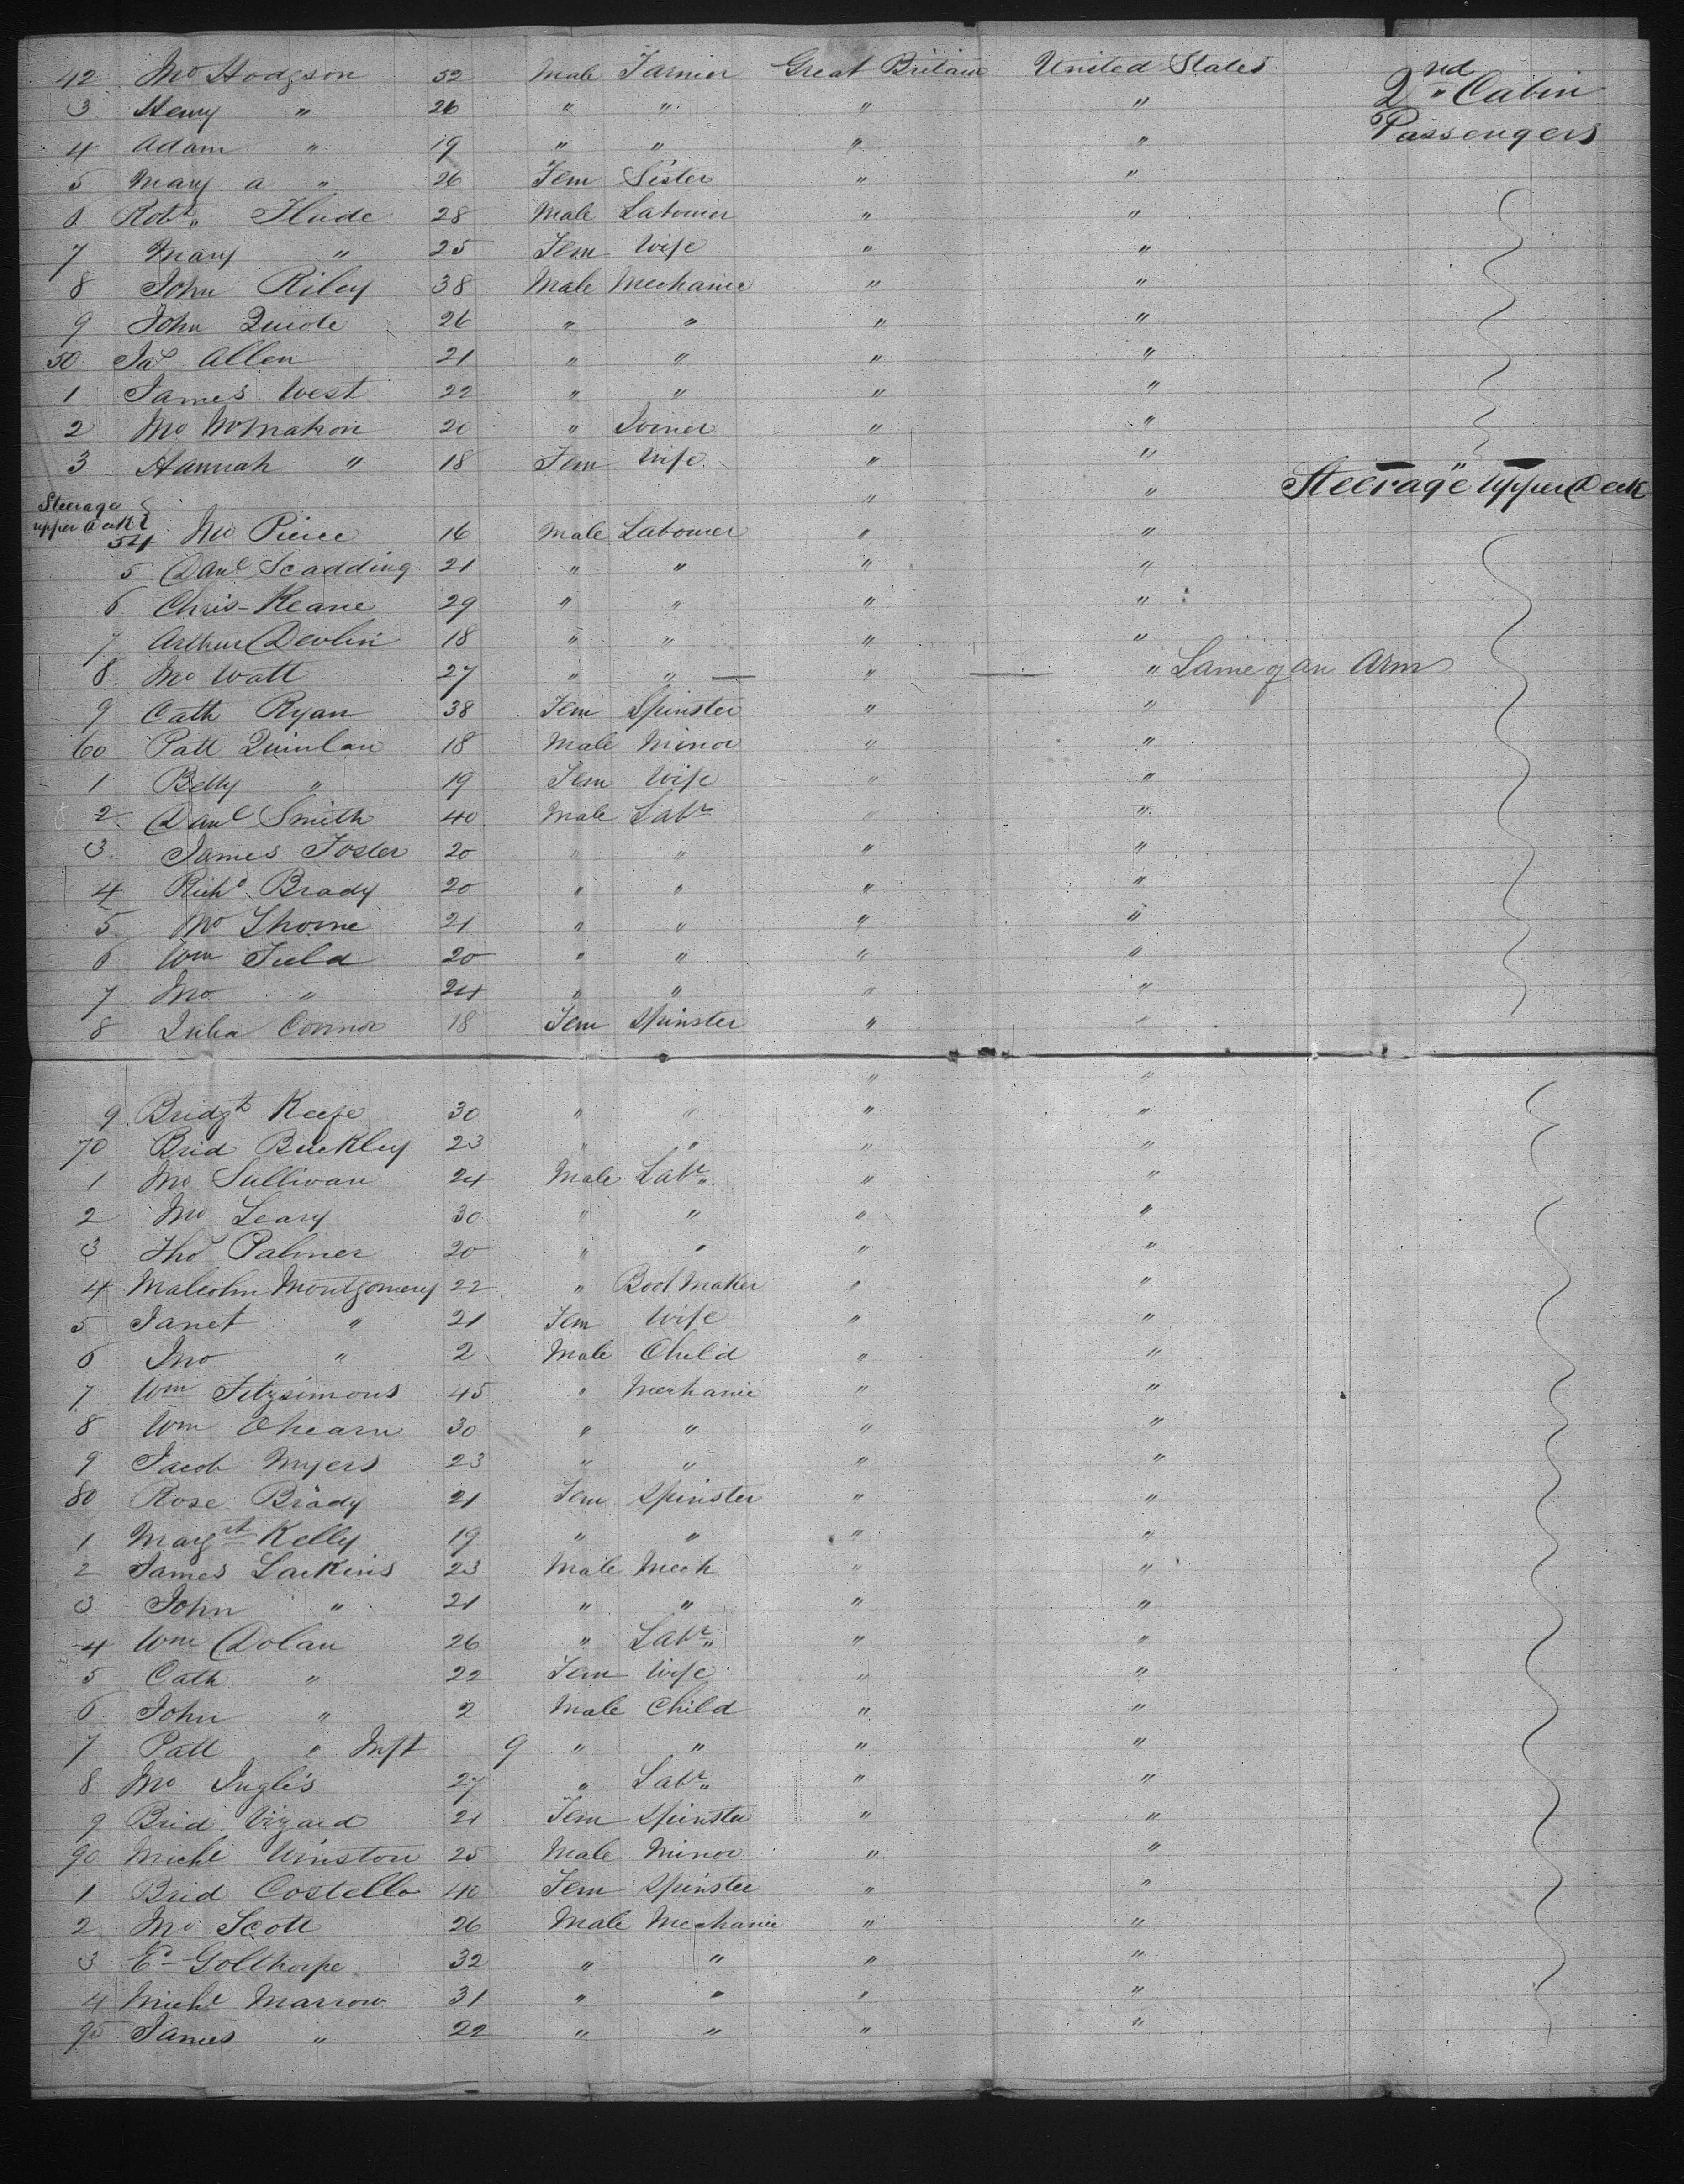 42 Jno Hodgson 52 Male Farmer Great Britain United States 2nd Cabin
3 Henry " 26 " " " " Passengers
4 Adam " 19 " " " "
5 Mary A " 26 Fem Sister " "
6 Robt Hude 28 Male Labourer " "
7 Mary " 25 Fem Wife " "
8 John Riley 38 Male Mechanic " "
9 John 26 " " " "
50 Jas Allen 21 " " " "
1 James West 22 " " " "
2 Jno McMahon 20 " Joiner " "
3 Hannah " 18 Fem Wife " "
Steerage " " Steerage Upper Deck
upper Deck
54 Jno Pierce 16 Male Labourer " "
5 Danl Scadding 21 " " " "
6 Chris Keane 29 " " " "
7 Arthur Devlin 18 " " " "
8 Jno Watt 27 " " — " — " Lame of an Arm
9 Cath Ryan 38 Fem Spinster " "
60 Patt Quinlan 18 Male Minor " "
1 Betty " 19 Fem Wife " "
2 Danl Smith 40 Male Labr " "
3 James Foster 20 " " " "
4 Richd Brady 20 " " " "
5 Jno Thorne 21 " " " "
6 Wm Field 20 " " " "
7 Jno " 24 " " " "
8 Julia Connor 18 Fem Spinster " "
" "
9 Bridgt Keefe 30 " " " "
70 Brid Buckley 23 " " " "
1 Jno Sullivan 24 Male Labr " "
2 Jno Leary 30 " " " "
3 Thos Palmer 20 " " " "
4 Malcolm Montgomery 22 " Boot Maker " "
5 Janet " 21 Fem Wife " "
6 Jno " 2 Male Child " "
7 Wm Fitzsimons 45 " Mechanic " "
8 Wm Ohearn 30 " " " "
9 Jacob Myers 23 " " " "
80 Rose Brady 21 Fem Spinster " "
1 Margt Kelly 19 " " " "
2 James Larkins 23 Male Mech " "
3 John " 21 " " " "
4 Wm Dolan 26 " Labr " "
5 Cath " 22 Fem Wife " "
6 John " 2 Male Child " "
7 Patt " Inft 9 " " " "
8 Jno Inglis 27 " Labr " "
9 Brid Vizard 21 Fem Spinster " "
90 Michl Winston 25 Male Minor " "
1 Brid Costello 40 Fem Spinster " "
2 Jno Scott 26 Male Mechanic " "
3 E Golthorpe 32 " " " "
4 Michl Marrow 31 " " " "
95 James " 22 " " " "